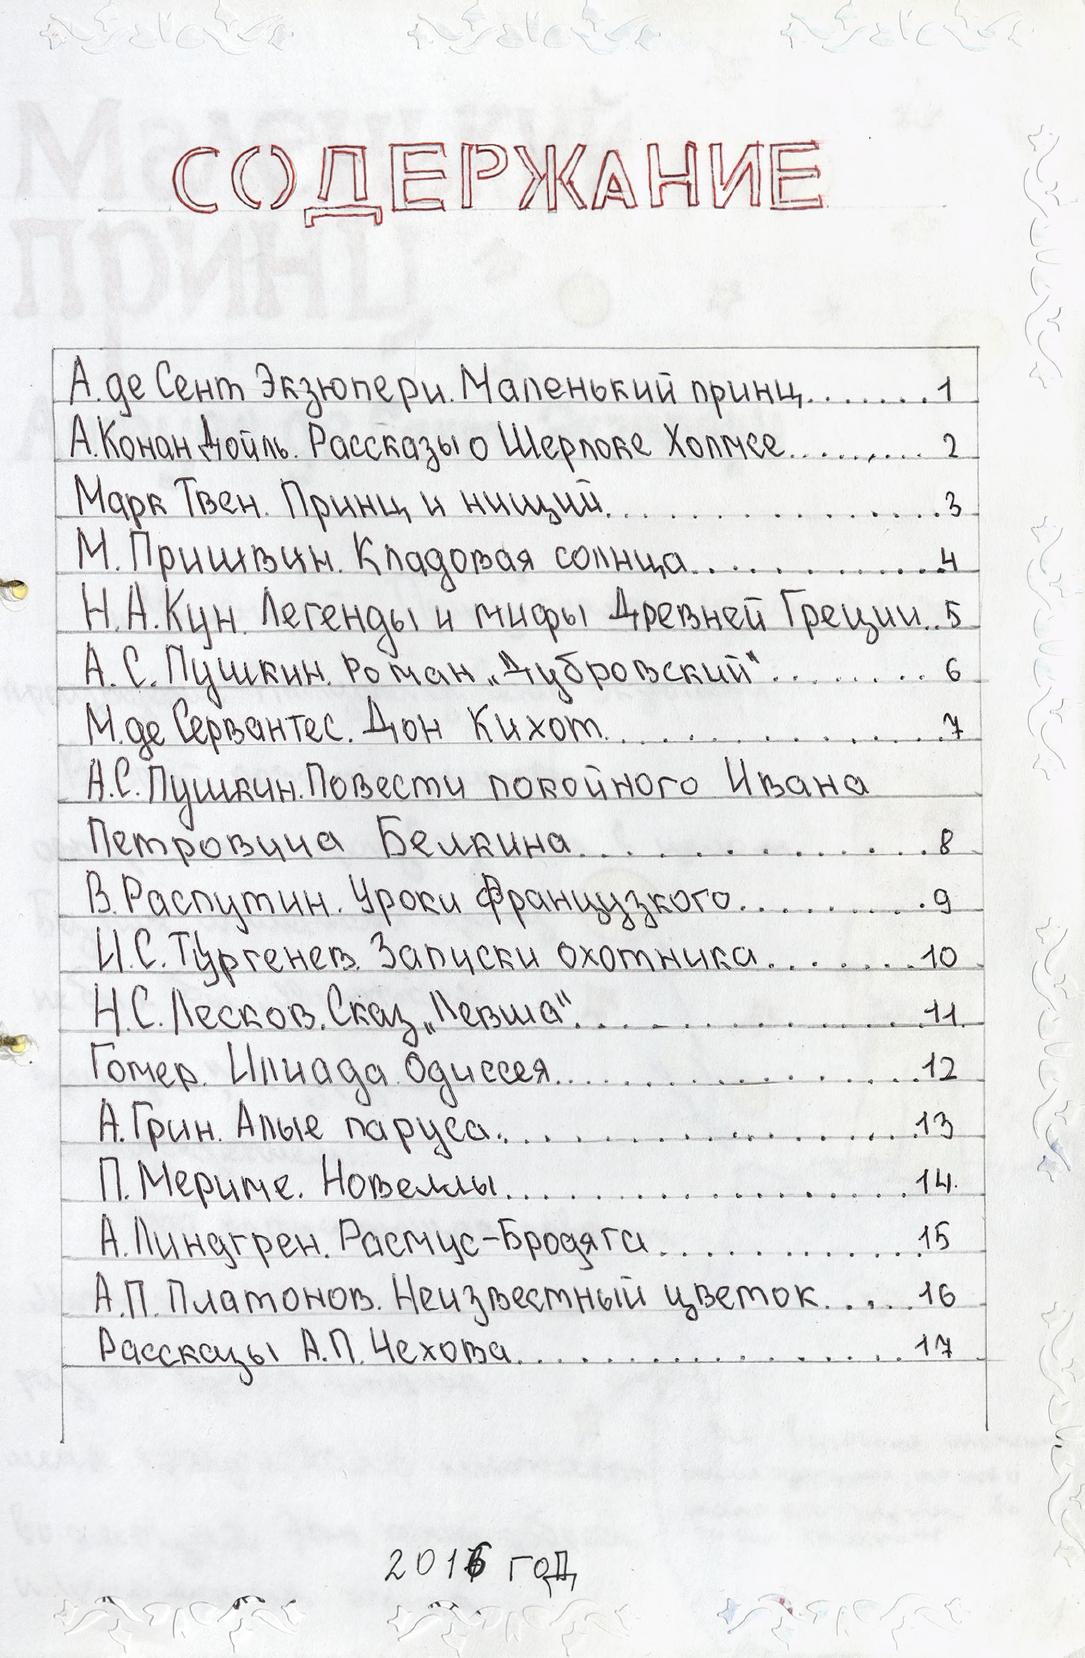 СОДЕРЖАНИЕ
А. де Сент Экзюпери. Маленький принц.......1
А.Конан Дойль. Рассказы о Шерлоке Холмсе.........2
Марк Твен. Принц и нищий................3
М. Пришвин. Кладовая солнца.............4
Н.А.Кун. Легенды и мифы Древней Греции..5
А.С.Пушкин. Роман „Дубровский“........6
М.де Сервантес. Дон Кихот..............7
А.С.Пушкин.Повести покойного Ивана
Петровича Белкина.............8
В.Распутин. Уроки Французкого.........9
И.С.Тургенев. Записки охотника.......10
Н.С.Лесков.Сказ „Левша“..............11
Гомер. Илиада. Одиссея..............12
А.Грин. Алые паруса................13
П.Мериме. Новеллы.................14
А.Линдгрен. Расмус-Бродяга............15
А.П.Платонов. Неизвестный цветок.....16
Рассказы А.П.Чехова................17
2016 год